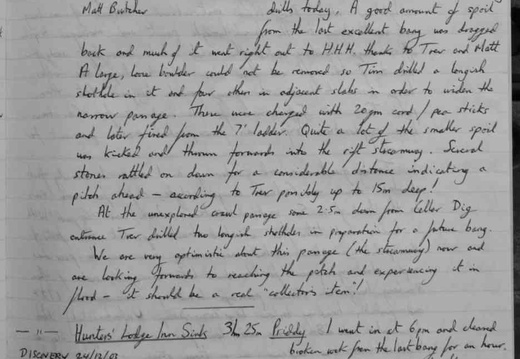 Matt Butcher
drills today. A good amount of spoil
from the last excellent bang was dragged
back and much of it went right out to H.H.H. thanks to Trev and Matt
A large, loose boulder could not be removed so Tim drilled a longish
shothole in it and four others in adjacent slabs in order to widen the
narrow passage. These were charged with 20gm cord / pea sticks
and later fired from the 7' ladder. Quite a lot of the smaller spoil
was kicked and thrown forwards into the rift streamway. Several
stones rattled on down for a considerable distance indicating a
pitch ahead - according to Trev possibly up to 15m deep!
At the unexplored crawl passage some 2.5m down from Cellar Dig
entrance Trev drilled two longish shotholes in preparation for a future bang.
We are very optimistic about this passage (the streamway) now and
are looking forwards to reaching the pitch and experiencing it in
flood - it should be a real "collectors item"!
— " — Hunters' Lodge Inn Sink 3¼ 25m Priddy I went in at 6pm and cleared
DISCOVERY 24/12/02 broken rock from the last bang for an hour.